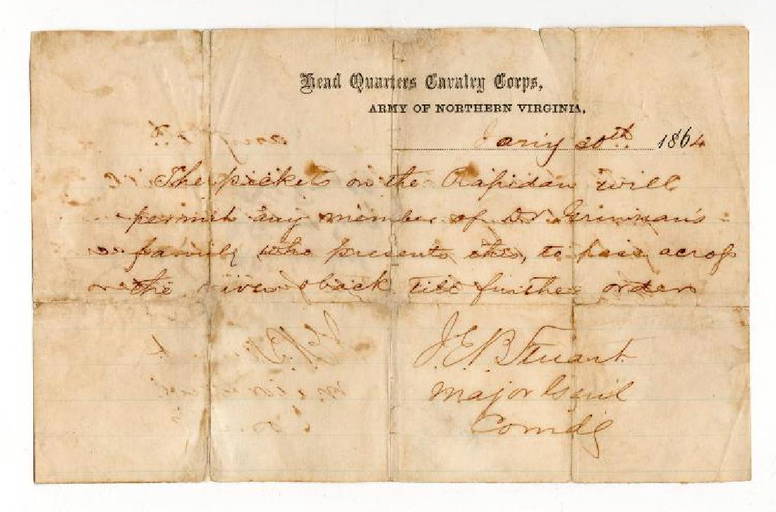 Head Quarters Cavalry Corps,
ARMY OF NORTHERN VIRGINIA,
Jany 20th 1864
The pickets on the Rapidan will
permit any member of Dr Grinnan's
family who presents this, to pass across
the river & back till further orders
J.E.B Stuart
Major Genl
Comdg